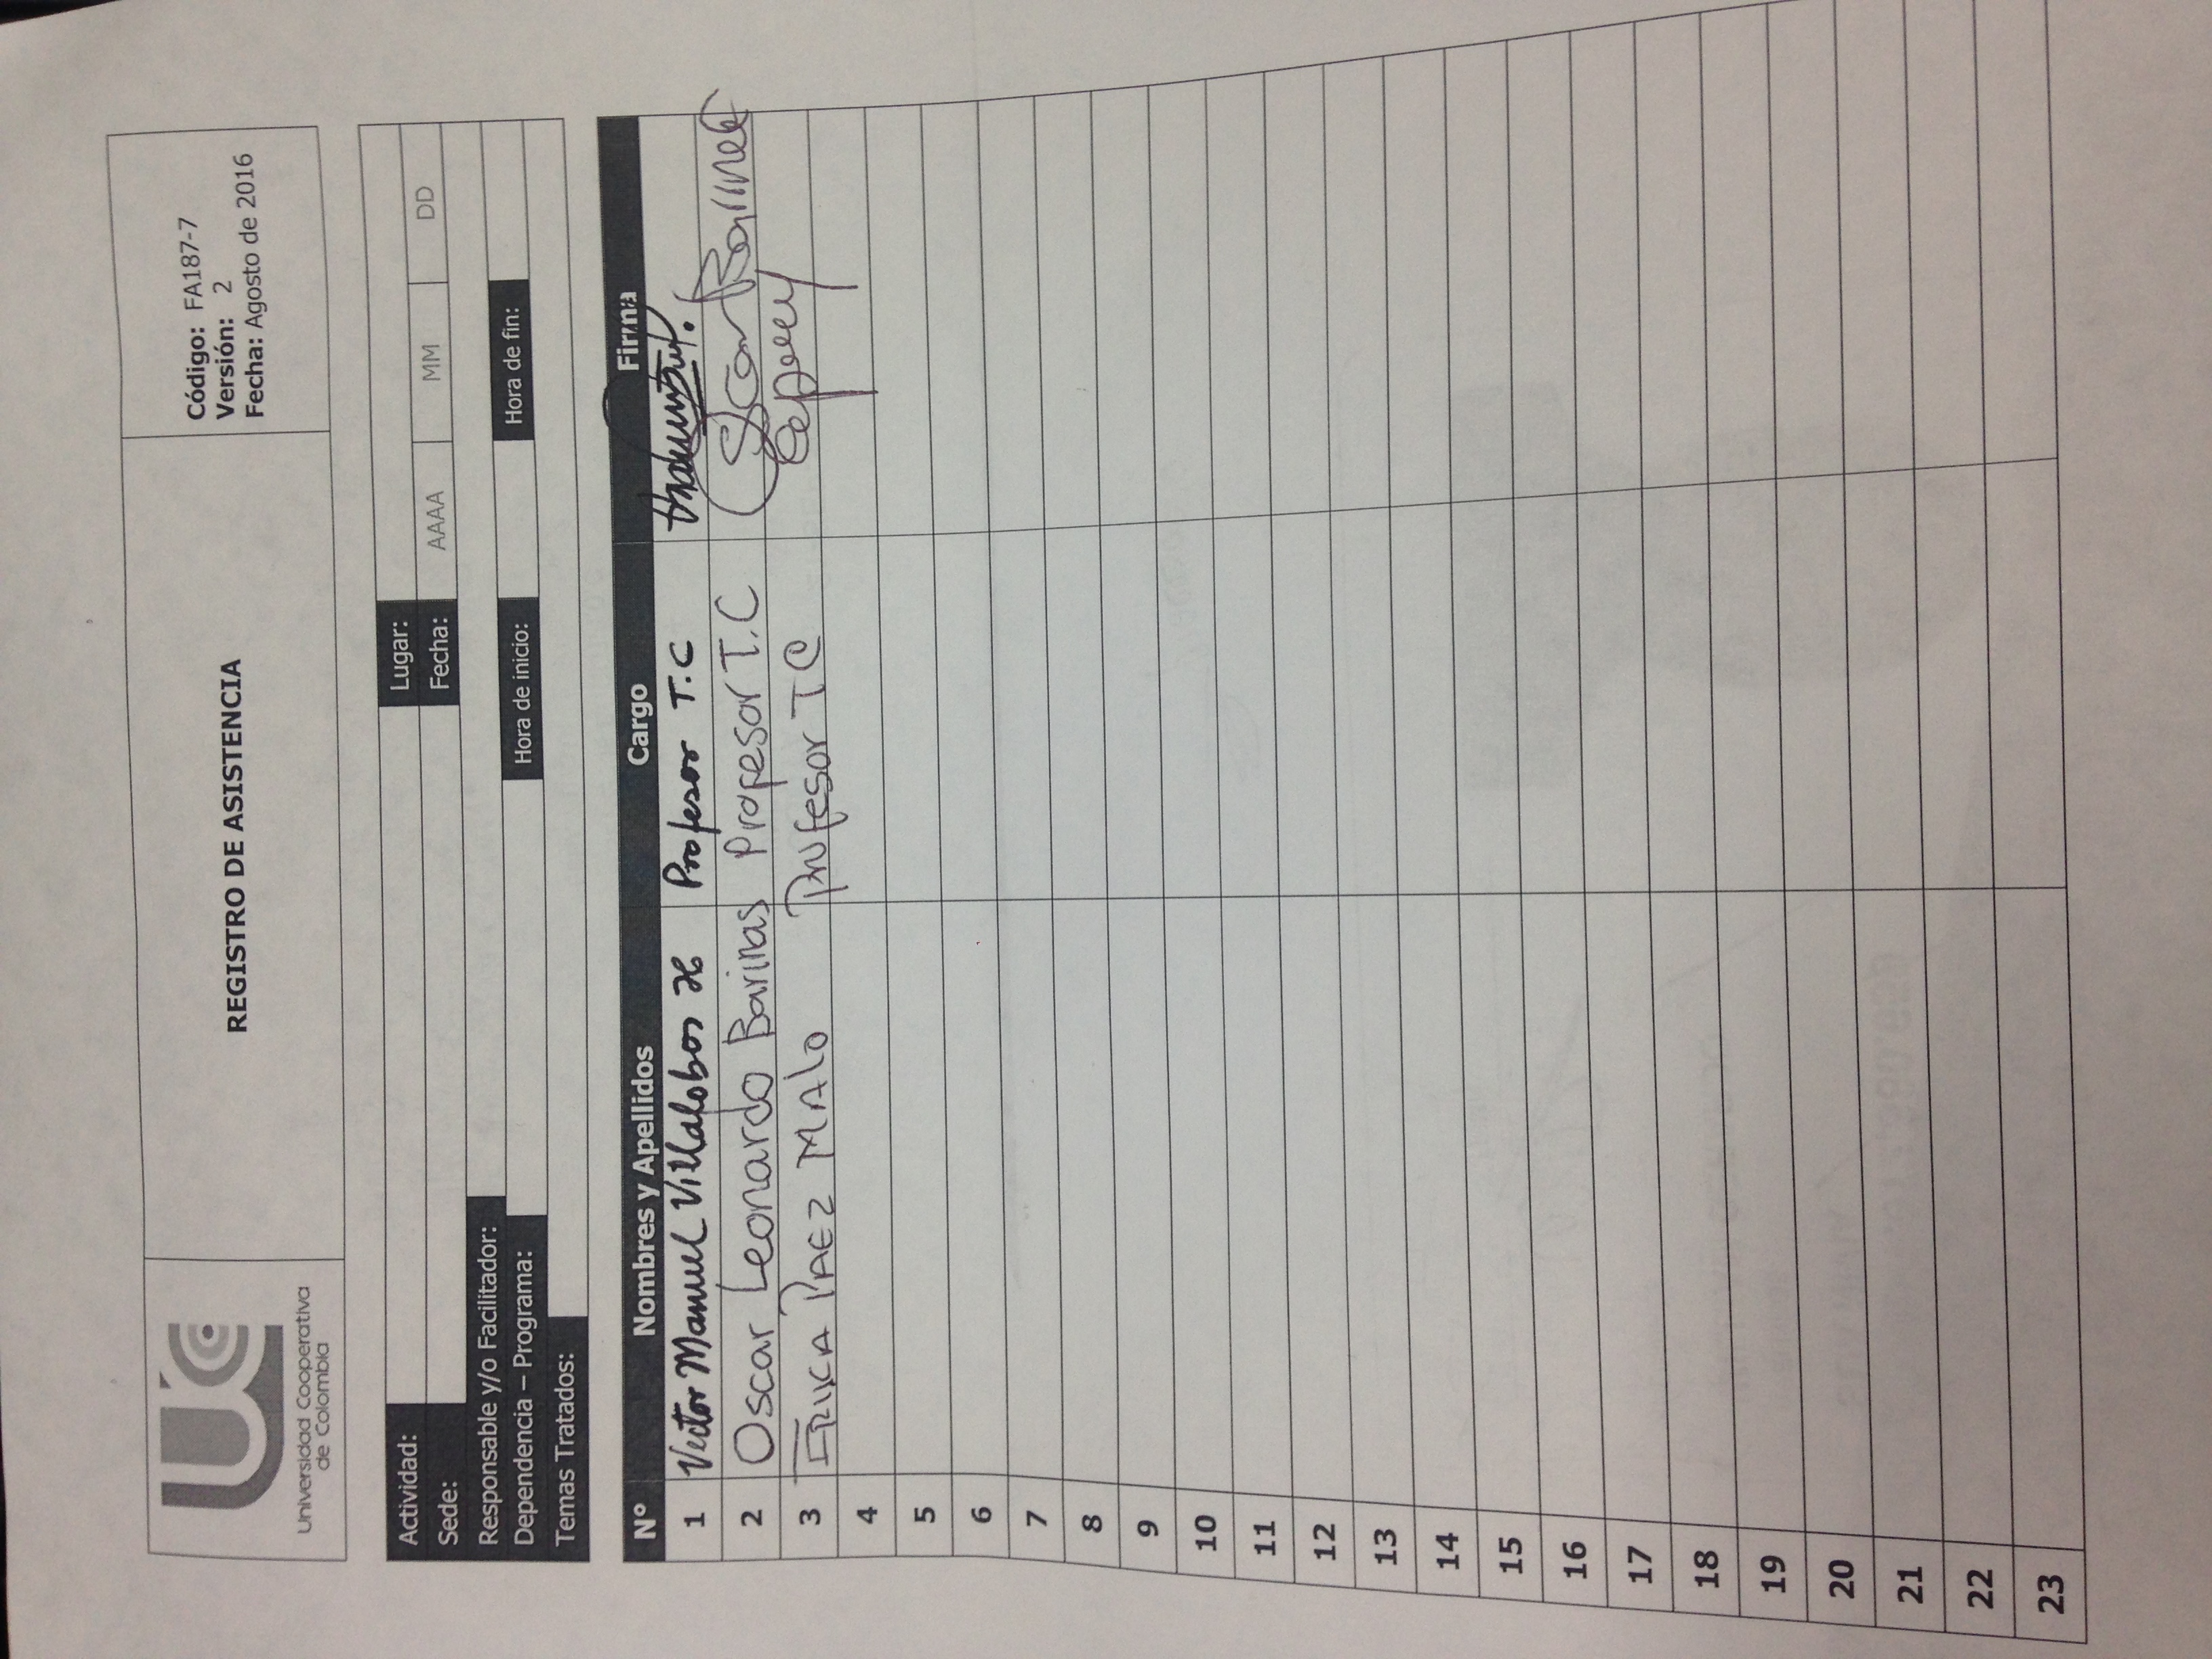 Universidad Cooperativa
de Colombia
REGISTRO DE ASISTENCIA
Código: FA187-7
Versión: 2
Fecha: Agosto de 2016
Actividad: Lugar:
Sede: Fecha: AAAA MM DD
Responsable y/o Facilitador:
Dependencia – Programa: Hora de inicio: Hora de fin:
Temas Tratados:
N° Nombres y Apellidos Cargo Firma
1 Victor Manuel Villalobos H Profesor T.C
2 Oscar Leonardo Barinas Profesor T.C Oscar Barinas
3 ERIKA PAEZ MALO Profesor TC
4
5
6
7
8
9
10
11
12
13
14
15
16
17
18
19
20
21
22
23